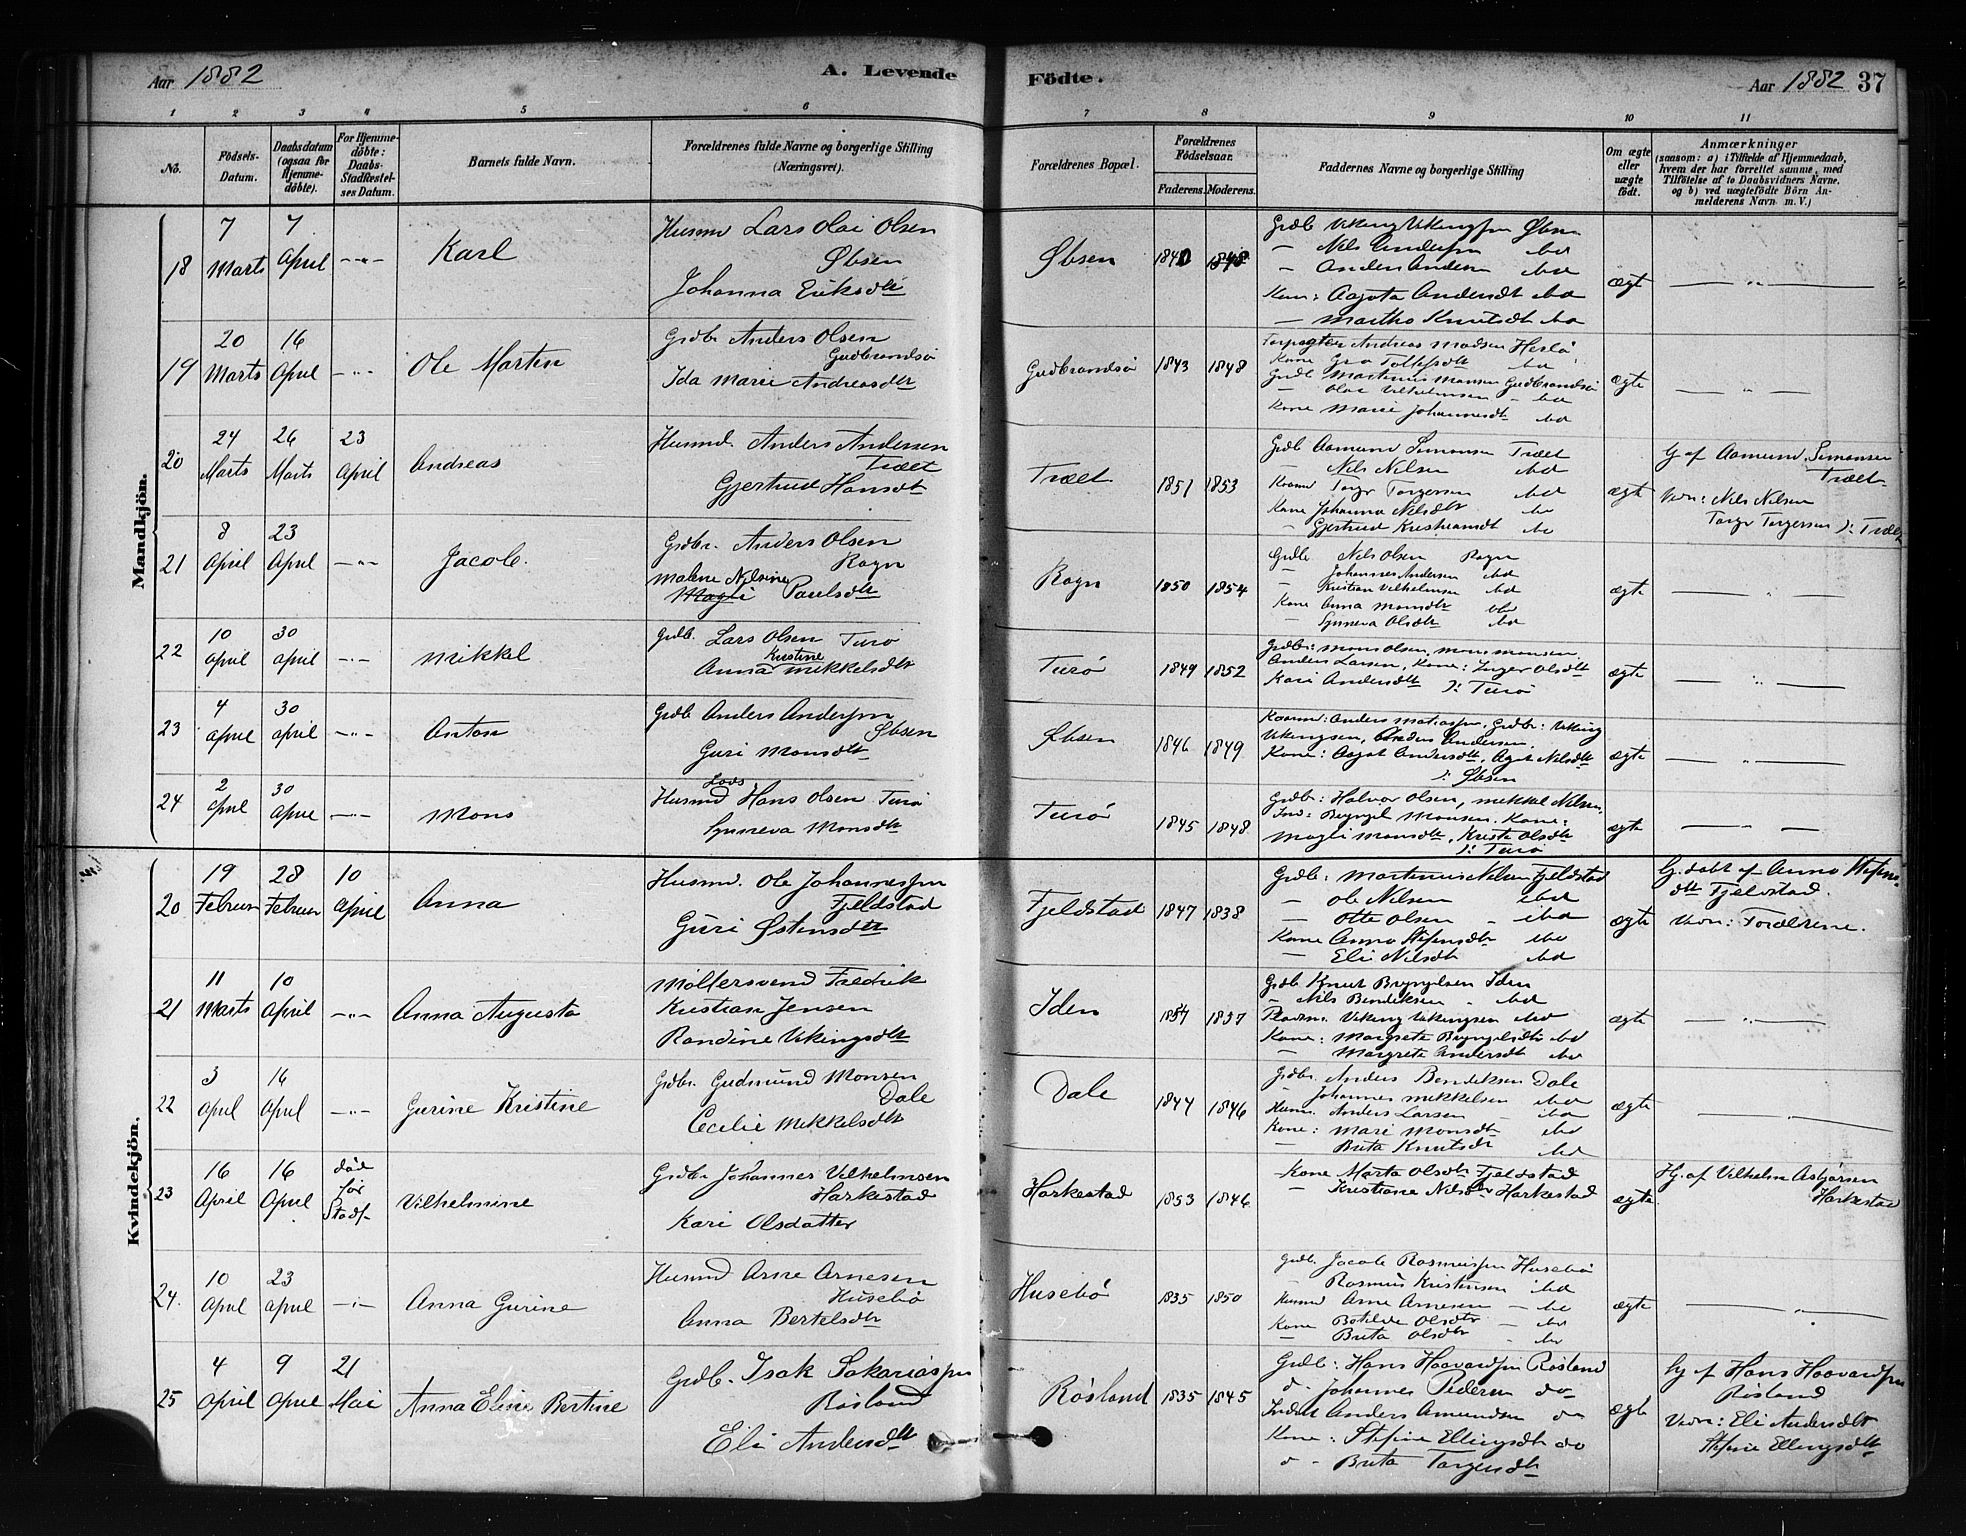 Aar 1882
A. Levende
Födte.
Aar 1882 37
1 2 3 4 5 6 7 8 9 10 11
No.
Födsels-Datum.
Daabsdatum (ogsaa for Hjemme-döbte).
For Hjemme-döbte: Daabs-Stadfæstel-ses Datum.
Barnets fulde Navn.
Forældrenes fulde Navne og borgerlige Stilling (Næringsvei).
Forældrenes Bopæl.
Forældrenes Födselsaar.
Faderens. Moderens.
Faddernes Navne og borgerlige Stilling
Om ægte eller uægte födt.
Anmærkninger
(saasom: a) i Tilfælde af Hjemmedaab,
hvem der har forrettet samme, med
Tilföielse af to Daabsvidners Navne,
og b) ved uægtefödte Börn An-
melderens Navn m. V.)
Mandkjön.
18 7 Marts 7 April Karl
Husmd Lars Olai Olsen
Øbsen
Johanna Eriksdtr
Øbsen 1840 1848
Grdb Viking Vikingsen Øbsen
Nils Andersen ibd
Anders Andersen ibd
Kone: Aagota Andersdt ibd
Martha Knutsdt ibd
ægte
19 20 Marts 16 April Ole Martin
Grdbr Anders Olsen
Gudbrandsö
Ida Marie Andreasdtr
Gudbrandsö 1843 1848
Forpagter Andreas Madsen Herlö
Kone Gro Tollefsdtr ibd
Grdb Martinus Monsen Gudbrandsö
Olai Vilhelmsen ibd
Kone Marie Johannesdt ibd
ægte
20 24 Marts 26 Marts 23 April Andreas
Husmd. Anders Andersen
Trælt
Gjertrud Hansdt
Trælt 1851 1853
Grdb Aamund Simonsen Trælt
Nils Nilsen ibd
Torgr Torgersen ibd
Kone Johanna Nilsdtr ibd
Gjertrud Kristiansdt ibd
ægte
Hj af Aamund Simonsen
Trælt
Vidn: Nils Nilsen
Torgr Torgersen ): Trælt
21 8 April 23 April Jacob.
Grdbr. Anders Olsen
Rogn
Malene Nilsine
Magli Paulsdtr
Rogn 1850 1854
Grdb Nils Olsen Rogn
Johannes Andersen ibd
Kristian Vilhelmsen ibd
Kone Anna Monsdtr ibd
Synneva Olsdtr ibd
ægte
22 10 April 30 April Mikkel
Grdb. Lars Olsen Turö
Kristine
Anna Mikkelsdtr
Turö 1849 1852
Grdbr: Mons Olsen, Mons Monsen,
Anders Larsen, Kone: Inger Olsdtr
Kari Andersdtr ): Turö
ægte
23 4 April 30 April Anton
Grdb Anders Andersen
Øbsen
Guri Monsdtr
Øbsen 1846 1849
Anders Matiassen, Grdbr: Viking
Vikingsen, Anders Andersen
Kone: Aagot Andersdtr, Agot Nilsdtr
): Øbsen
ægte
24 2 April 30 April Mons
Lods
Husmd Hans Olsen Turö
Synneva Monsdtr
Turö 1845 1848
Grdbr: Halvor Olsen, Mikkel Nilsen,
Brynjel Monsen. Kone:
Magli Monsdtr, Krista Olsdtr
): Turö
ægte
Kvindekjön.
20 19 Februar 28 Februar 10 April Anna
Husmd. Ole Johannessen
Fjeldstad
Guri Østensdtr
Fjeldstad 1847 1838
Grdb: Martinus Nilsen Fjeldstad
Ole Nilsen ibd
Otte Olsen ibd
Kone Anna Stefensdtr ibd
Eli Nilsdtr ibd
ægte
Hj. döbt af Anna Stefens-
dtr Fjeldstad.
Vidn: Forældrene.
21 11 Marts 10 April Anna Augusta
Möllersvend Fredrik
Kristian Jensen
Randine Vikingsdtr
Iden 1854 1837
Grdb Knut Brynjelsen Iden
Nils Bendiksen ibd
Viking Vikingsen ibd
Kone: Margrete Brynjelsdtr ibd
Margrete Andersdt ibd
ægte
22 3 April 16 April Gurine Kristine
Grdbr. Gudmund Monsen
Dale
Cecilie Mikkelsdtr
Dale 1844 1846
Grdbr. Anders Bendiksen Dale
Johannes Mikkelsen ibd
Husm. Anders Larsen ibd
Kone: Mari Monsdtr ibd
Brita Knutsdtr ibd
ægte
23 16 April 16 April död för Stadf- Vilhelmine
Grdbr Johannes Vilhelmsen
Harkestad
Kari Olsdatter
Harkestad 1853 1846
Kone Marta Olsdtr Fjeldstad
Kristiane Nilsdtr Harkestad
ægte
Hj. af Vilhelm Asbjörsen
Harkestad
24. 10 April 23 April Anna Gurine
Husmd Arne Arnesen
Husebö
Anna Bertelsdtr
Husebö 1835 1850
Grdb. Jacob Rasmussen Husebö
Rasmus Kristensen ibd
Husmd Arne Arnesen ibd
Kone Botilde Olsdtr ibd
Brita Olsdtr ibd
ægte
25 4 April 9 April 21 Mai Anna Eline Bertine
Grdb. Isak Sakariassen
Rösland
Eli Andersdtr
Rösland 1835 1845
Grdb: Hans Haavardsen Rösland
do Johannes Pedersen do
Anders Amundsen do
Kone: Stefine Ellingsdt do
do Brita Torgersdtr
ægte
hj af Hans Haavardsen
Rösland
Vidn: Eli Andersdtr
Stefine Ellingsdtr